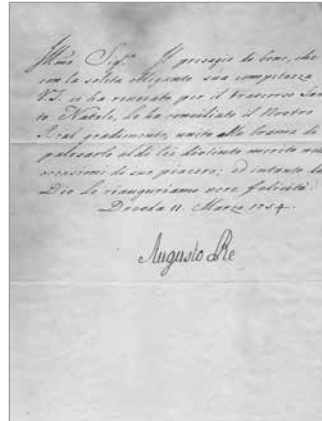 Illmo Sigre. Il presagio di bene, che
con la solita elegante sua competenza
V.S. ci ha rinovato per il trascorso San-
to Natale, Le ha conciliato il Nostro
Real gradimento, unito alla brama di
palesarlo al di lei distinto merito nelle
occasioni di suo piacere; ed intanto da
Dio Le riauguriamo vere felicità.
Dresda 11. Marzo 1754.
Augusto Re